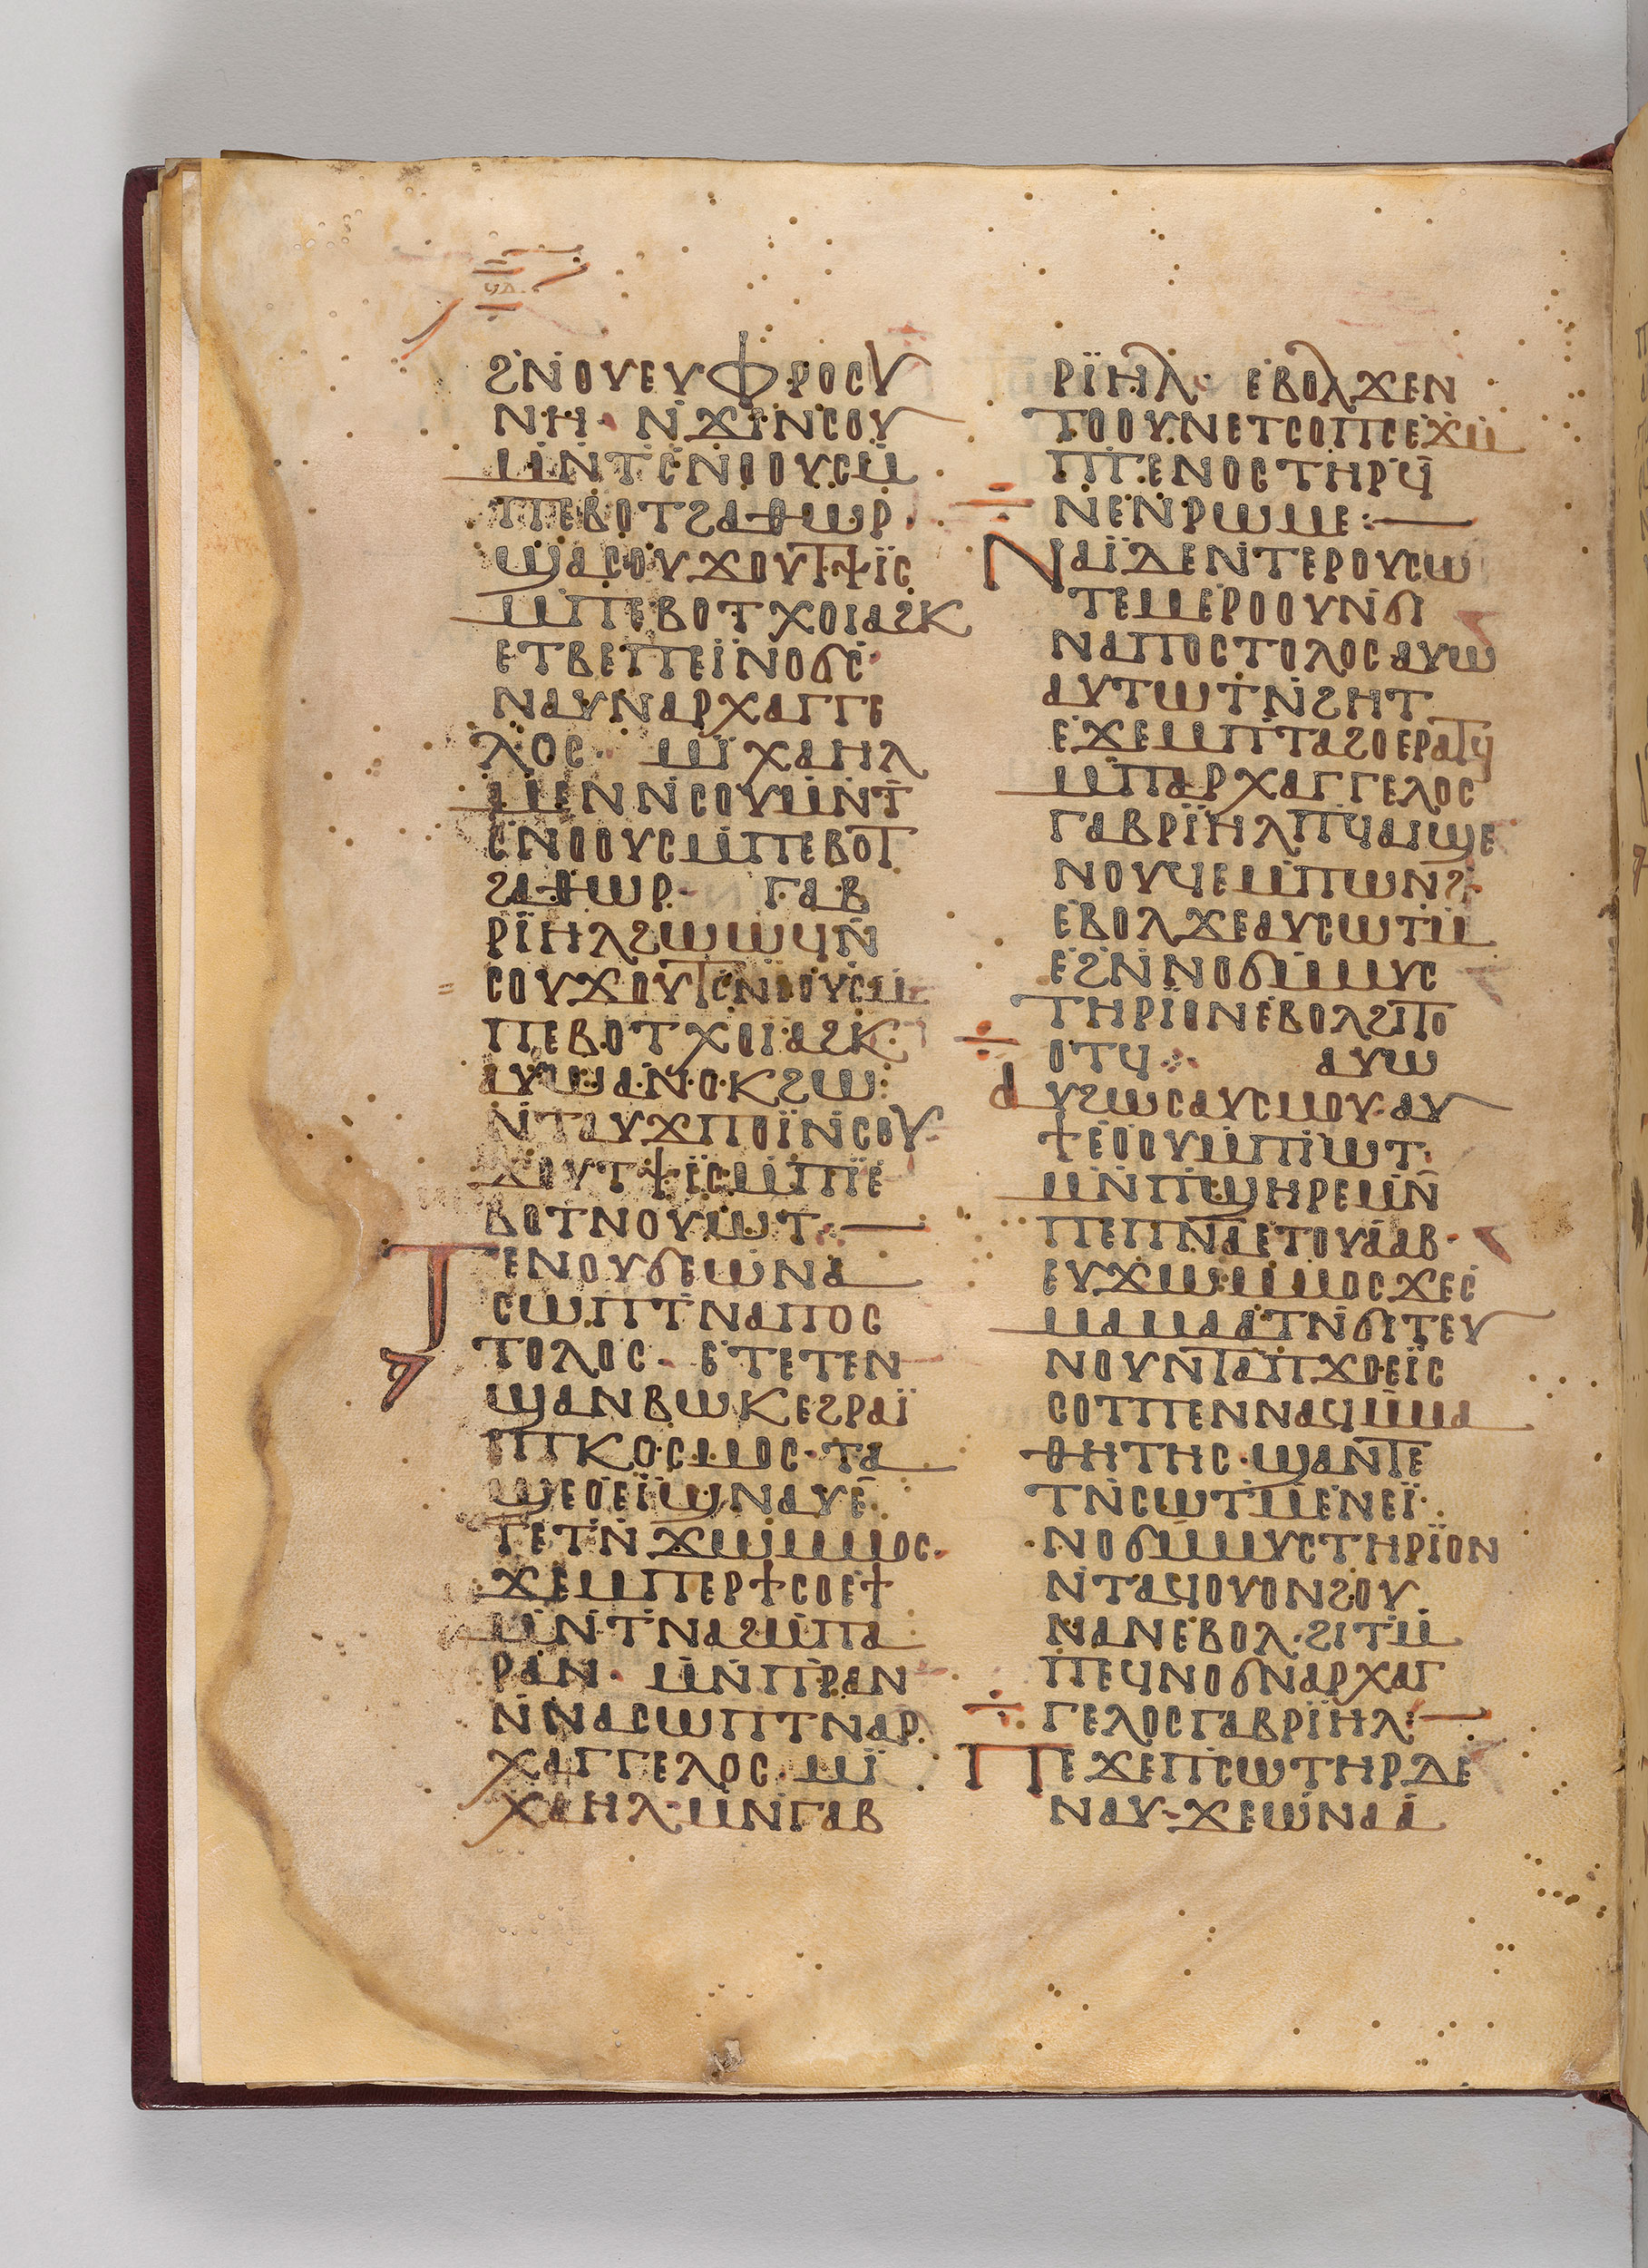 ϩⲛⲟⲩⲉⲩⲫⲣⲟⲥⲩ
ⲛⲏ· ⲛϫⲓⲛⲥⲟⲩ
ⲙⲛⲧⲥⲛⲟⲟⲩⲥⲙ
ⲡⲉⲃⲟⲧϩⲁⲑⲱⲣ·
ϣⲁⲥⲟⲩϫⲟⲩⲧϯⲓ̈ⲥ
ⲙⲡⲉⲃⲟⲧⲭⲟⲓⲁϩⲕ
ⲉⲧⲃⲉⲡⲉⲓ̈ⲛⲟϭⲥ·
ⲛⲁⲩⲛⲁⲣⲭⲁⲅⲅⲉ
ⲗⲟⲥ· ⲙⲓ̈ⲭⲁⲏⲗ
ⲙⲉⲛⲛⲥⲟⲩⲙⲛⲧ
ⲥⲛⲟⲟⲩⲥⲙⲡⲉⲃⲟⲧ
ϩⲁⲑⲱⲣ· ⲅⲁⲃ
ⲣⲓ̈ⲏⲗϩⲱⲱϥⲛ̄
ⲥⲟⲩϫⲟⲩⲧⲥⲛⲟⲟⲩⲥⲙ
ⲡⲉⲃⲟⲧⲭⲟⲓⲁϩⲕ·
ⲁⲩⲱⲁⲛⲟⲕϩⲱ:
ⲛⲧⲁⲩϫⲡⲟⲓ̈ⲛⲥⲟⲩ·
ϫⲟⲩⲧϯⲓ̈ⲥⲙⲡⲓ̈ⲉ
ⲃⲟⲧⲛⲟⲩⲱⲧ·:—
ⲧⲉⲛⲟⲩϭⲉⲱⲛⲁ
ⲥⲱⲡⲧⲛⲁⲡⲟⲥ
ⲧⲟⲗⲟⲥ· ⲉⲧⲉⲧⲉⲛ
ϣⲁⲛⲃⲱⲕⲉϩⲣⲁⲓ̈
ⲡⲕⲟⲥⲙⲟⲥ·ⲧⲁ
ϣⲉⲟⲉⲓ̈ϣⲛⲁⲩⲉ̄
ⲧⲉⲧⲛϫⲱⲙⲙⲟⲥ·
ϫⲉⲙⲡⲉⲣϯⲥⲟⲉϯ
ⲙⲛⲧⲛⲁϩⲙⲡⲁ
ⲣⲁⲛ· ⲙⲛⲡⲣⲁⲛ
ⲛⲛⲁⲥⲱⲡⲧⲛⲁⲣ
ⲭⲁⲅⲅⲉⲗⲟⲥ· ⲙⲓ̈
ⲭⲁⲏⲗ·ⲙⲛⲅⲁⲃ
ⲣⲓ̈ⲏⲗ· ⲉⲃⲟⲗϫⲉⲛ
ⲧⲟⲟⲩⲛⲉⲧⲥⲟⲡⲥⲉϫⲙ
ⲡⲅⲉⲛⲟⲥⲧⲏⲣϥ̄
ⲛⲉⲛⲣⲱⲙⲉ:—
ⲛⲁⲓ̈ⲇⲉⲛⲧⲉⲣⲟⲩⲥⲱ
ⲧⲉⲙⲉⲣⲟⲟⲩⲛϭⲓ
ⲛⲁⲡⲟⲥⲧⲟⲗⲟⲥⲁⲩⲱ
ⲁⲩⲧⲱⲧⲛϩⲏⲧ
ⲉϫⲉⲙⲡⲧⲁϩⲟⲉⲣⲁⲧϥ
ⲙⲡⲁⲣⲭⲁⲅⲅⲉⲗⲟⲥ
ⲅⲁⲃⲣⲓ̈ⲏⲗⲡϥⲁⲓϣⲉ
ⲛⲟⲩϥⲉⲙⲡⲱⲛϩ·
ⲉⲃⲟⲗϫⲉⲁⲩⲥⲱⲧⲙ
ⲉϩⲛⲛⲟϭⲙⲙⲩⲥ
ⲧⲏⲣⲓ̈ⲟⲛⲉⲃⲟⲗϩⲓⲧⲟ
ⲟⲧϥ·:· ⲁⲩⲱ
ⲁⲩϩⲱⲥⲁⲩⲥⲙⲟⲩ·ⲁⲩ
ϯⲉⲟⲟⲩⲙⲡⲓⲱⲧ·
ⲙⲛⲡϣⲏⲣⲉⲙⲛ̄
ⲡⲉⲡⲛ̄ⲁⲉⲧⲟⲩⲁⲁⲃ·
ⲉⲩϫⲱⲙⲙⲟⲥϫⲉⲥ
ⲙⲁⲙⲁⲁⲧⲛϭⲓⲧⲉⲩ
ⲛⲟⲩⲛⲧⲁⲡϫⲟⲉⲓ̈ⲥ
ⲥⲟⲧⲡⲉⲛⲛⲁϥⲙⲙⲁ
ⲑⲏⲧⲏⲥ·ϣⲁⲛⲧⲉ
ⲧⲛⲥⲱⲧⲙⲉⲛⲉⲓ̈·
ⲛⲟϭⲙⲙⲩⲥⲧⲏⲣⲓ̈ⲟⲛ
ⲛⲧⲁϥⲟⲩⲟⲛϩⲟⲩ
ⲛⲁⲛⲉⲃⲟⲗ·ϩⲓⲧⲙ
ⲡⲉϥⲛⲟϭⲛⲁⲣⲭⲁⲅ
ⲅⲉⲗⲟⲥⲅⲁⲃⲣⲓ̈ⲏⲗ:—
ⲡⲉϫⲉⲡⲥⲱⲧⲏⲣⲇⲉ
ⲛⲁⲩ·ϫⲉⲱⲛⲁⲁ